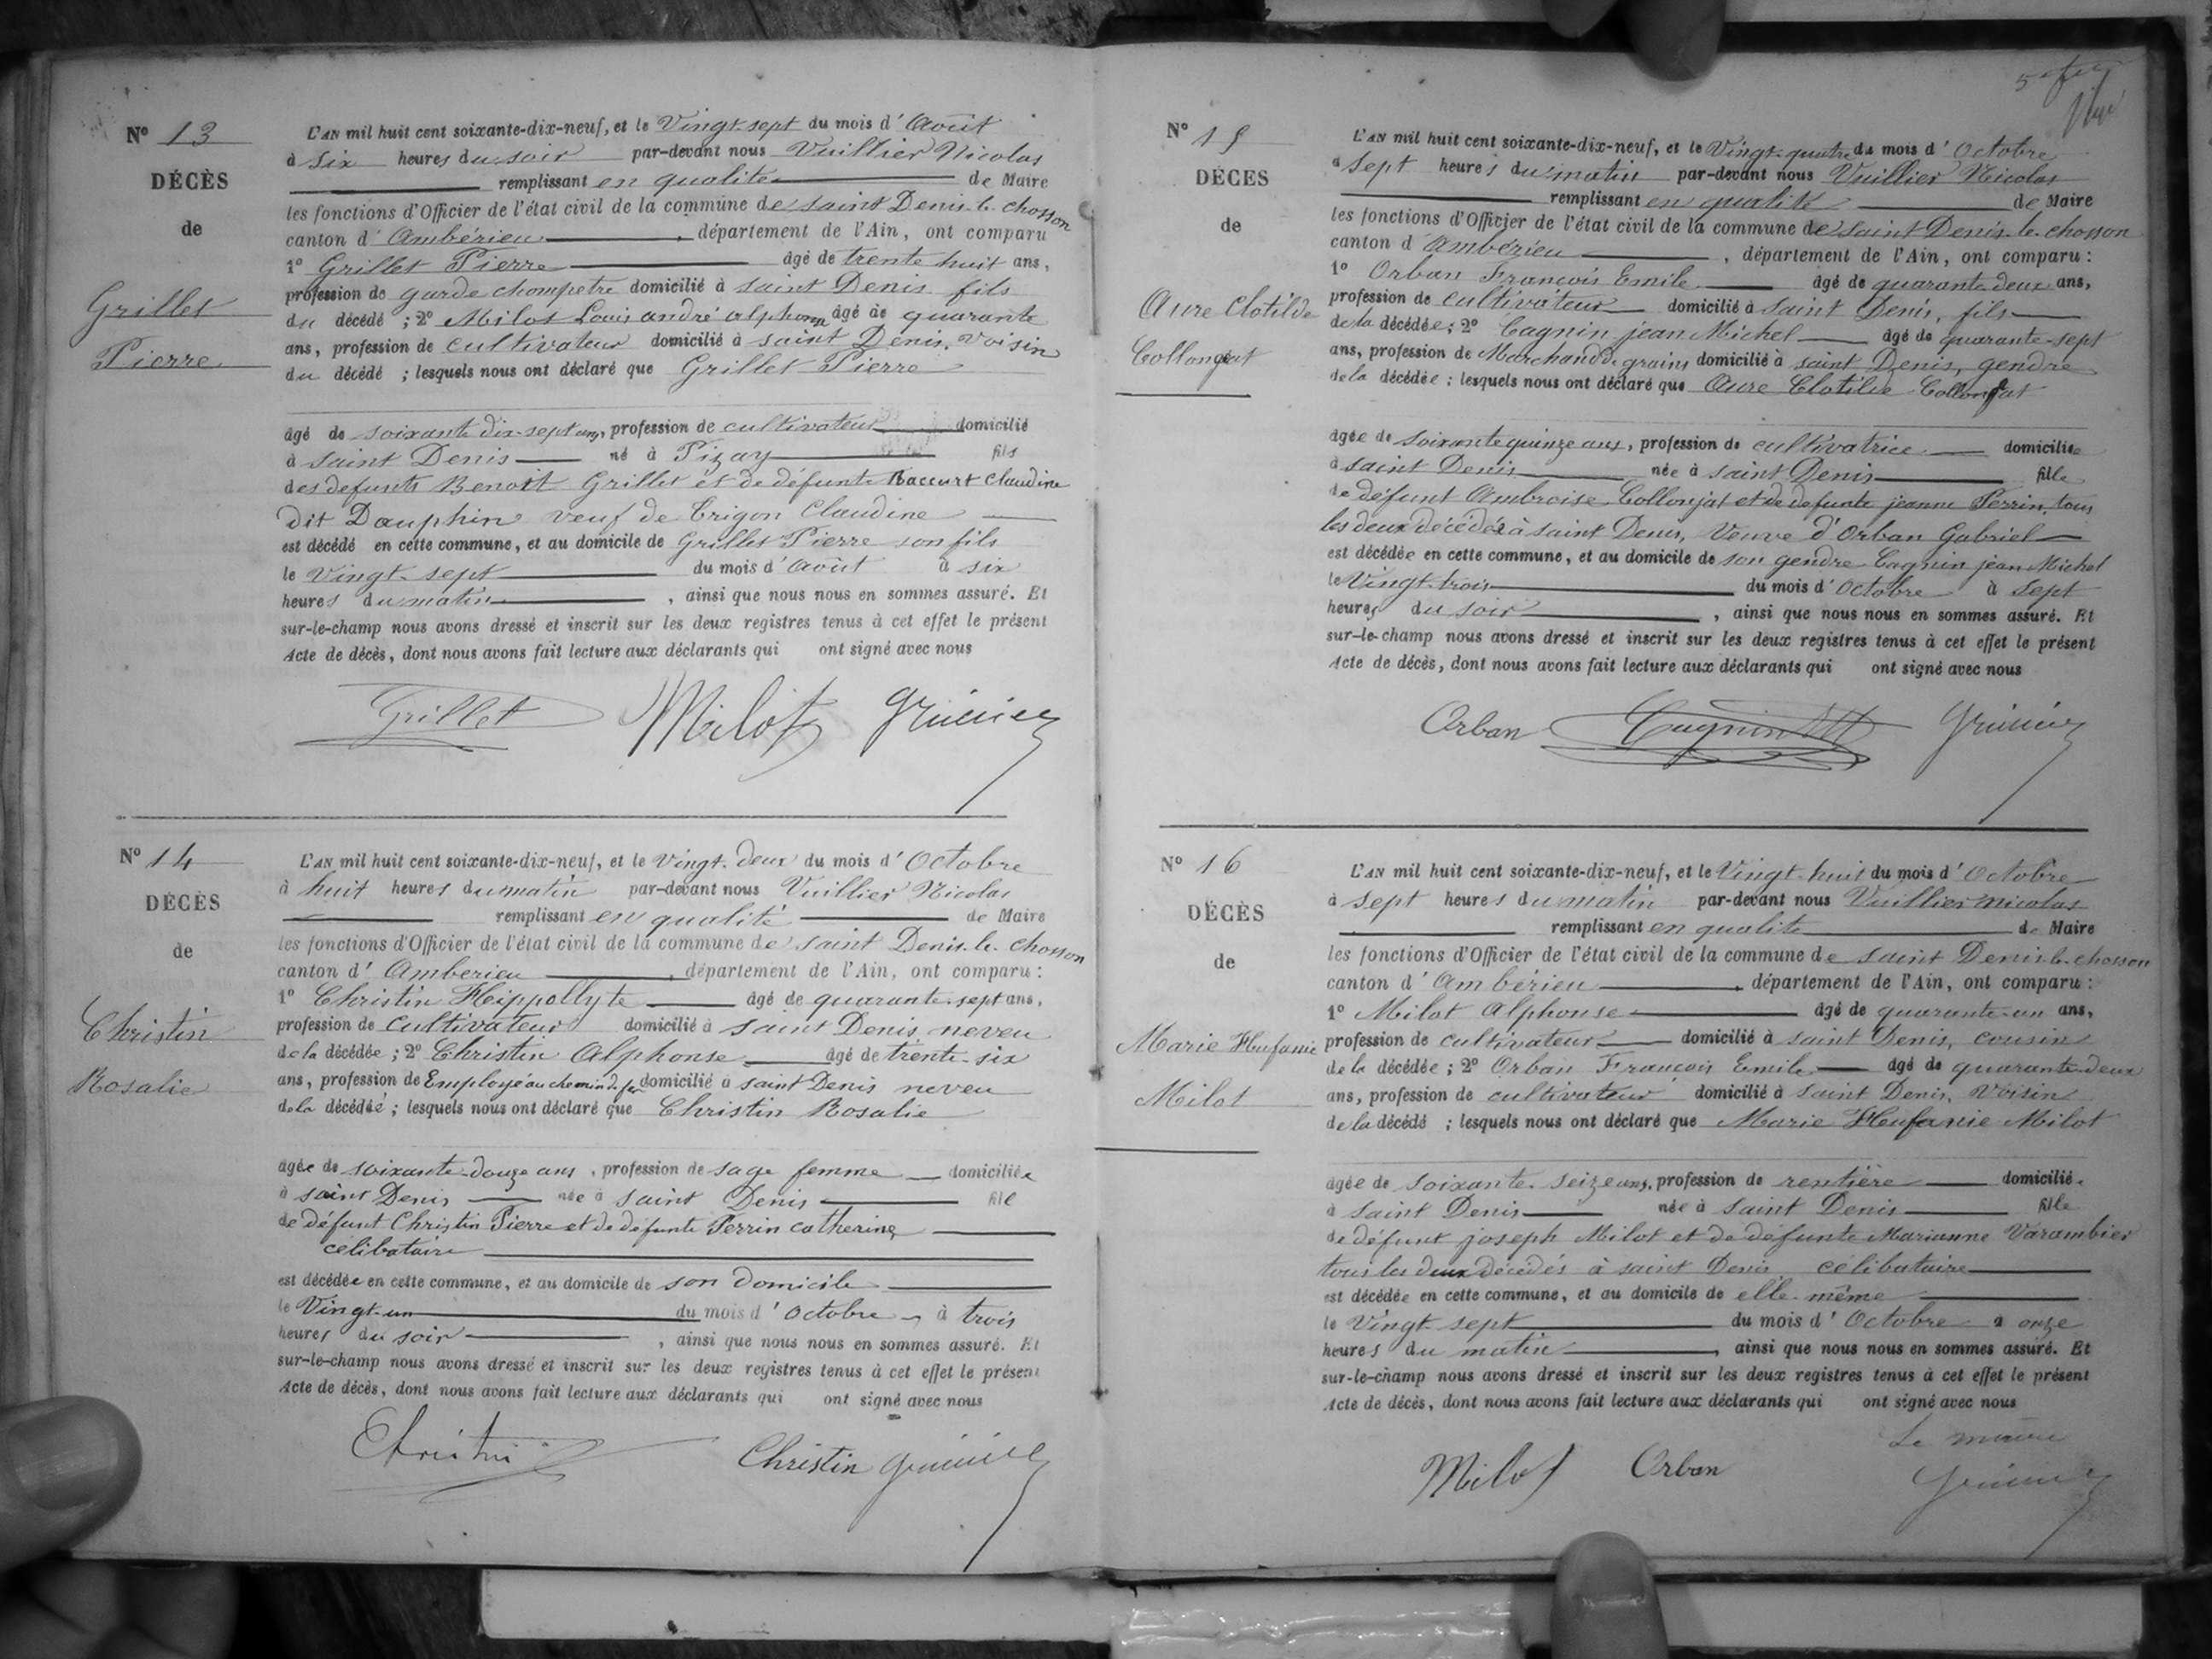 N° 13
DÉCÈS
de
Grillet
Pierre
L'AN mil huit cent soixante-dix-neuf, et le Vingt-sept du mois d'Août
à six heures du soir par-devant nous Vuillier Nicolas
remplissant en qualité de Maire
les fonctions d'Officier de l'état civil de la commune de saint Denis-le-chosson
canton d'Ambérieu, département de l'Ain, ont comparu
1° Grillet Pierre âgé de trente huit ans,
profession de garde chompetre domicilié à saint Denis fils
du décédé ; 2° Milot Louis andré alphons âgé de quarante
ans, profession de cultivateur domicilié à saint Denis, Voisin
du décédé ; lesquels nous ont déclaré que Grillet Pierre
âgé de soixante dix-sept ans, profession de cultivateur domicilié
à saint Denis né à Pizay fils
des defunts Benoit Grillet et de défunte Baccurt Claudine
dit Dauphin veuf de Trigon Claudine
est décédé en cette commune, et au domicile de Grillet Pierre son fils
le Vingt-sept du mois d'Août à six
heures du matin, ainsi que nous nous en sommes assuré. Et
sur-le-champ nous avons dressé et inscrit sur les deux registres tenus à cet effet le présent
Acte de décès, dont nous avons fait lecture aux déclarants qui ont signé avec nous
Grillet Milot
N° 14
DÉCÈS
de
Christin
Rosalie
L'AN mil huit cent soixante-dix-neuf, et le vingt-deux du mois d'Octobre
à huit heures du matin par-devant nous Vuillier Nicolas
remplissant en qualité de Maire
les fonctions d'Officier de l'état civil de la commune de saint Denis-le-chosson
canton d'Amberieu, département de l'Ain, ont comparu :
1° Christin Hippollyte âgé de quarante-sept ans,
profession de cultivateur domicilié à saint Denis neveu
de la décédée ; 2° Christin Alphonse âgé de trente-six
ans, profession de Employé au chemin de fer domicilié à saint Denis neveu
de la décédée ; lesquels nous ont déclaré que Christin Rosalie
âgée de soixante-douze ans, profession de sage femme domiciliée
à saint Denis née à saint Denis fille
de défunt Christin Pierre et de défunte Perrin catherine
celibataire
est décédée en cette commune, et au domicile de son domicile
le Vingt-un du mois d'Octobre à trois
heures du soir, ainsi que nous nous en sommes assuré. Et
sur-le-champ nous avons dressé et inscrit sur les deux registres tenus à cet effet le présent
Acte de décès, dont nous avons fait lecture aux déclarants qui ont signé avec nous
Christin Christin
N° 15
DÉCÈS
de
Aure Clotilde
Collonjat
L'AN mil huit cent soixante-dix-neuf, et le Vingt-quatre du mois d'Octobre
à sept heures du matin par-devant nous Vuillier Nicolas
remplissant en qualité de Maire
les fonctions d'Officier de l'état civil de la commune de saint Denis-le-chosson
canton d'Ambérieu, département de l'Ain, ont comparu :
1° Orban François Emile âgé de quarante deux ans,
profession de cultivateur domicilié à saint Denis, fils
de la décédée ; 2° Cagnin jean Michel âgé de quarante-sept
ans, profession de Marchand de grains domicilié à saint Denis, gendre
de la décédée : lesquels nous ont déclaré que Aure Clotilde Collonjat
âgée de soixante quinze ans, profession de cultivatrice domiciliée
à saint Denis née à saint Denis fille
de défunt Ambroise Collonjat et de defunte jeanne Perrin, tous
les deux décédés à saint Denis, Veuve d'Orban Gabriel
est décédée en cette commune, et au domicile de son gendre Cagnin jean Michel
le Vingt-trois du mois d'Octobre à sept
heures du soir, ainsi que nous nous en sommes assuré. Et
sur-le-champ nous avons dressé et inscrit sur les deux registres tenus à cet effet le présent
Acte de décès, dont nous avons fait lecture aux déclarants qui ont signé avec nous
Orban Cagnin
N° 16
DÉCÈS
de
Marie Heufanie
Milot
L'AN mil huit cent soixante-dix-neuf, et le Vingt-huit du mois d'Octobre
à sept heures du matin par-devant nous Vuillier Nicolas
remplissant en qualité de Maire
les fonctions d'Officier de l'état civil de la commune de saint Denis-le-chosson
canton d'Ambérieu, département de l'Ain, ont comparu :
1° Milot Alphonse âgé de quarante-un ans,
profession de cultivateur domicilié à saint Denis, cousin
de la décédée ; 2° Orban François Emile âgé de quarante-deux
ans, profession de cultivateur domicilié à saint Denis, Voisin
de la décédé ; lesquels nous ont déclaré que Marie Heufanie Milot
âgée de soixante-seize ans, profession de rentière domicilié
à saint Denis née à saint Denis fille
de défunt joseph Milot et de défunte Marianne Varambier
tous les deux décédés à saint Denis célibataire
est décédée en cette commune, et au domicile de elle-même
le Vingt-sept du mois d'Octobre à onze
heures du matin, ainsi que nous nous en sommes assuré. Et
sur-le-champ nous avons dressé et inscrit sur les deux registres tenus à cet effet le présent
Acte de décès, dont nous avons fait lecture aux déclarants qui ont signé avec nous
Le maire
Milot Orban